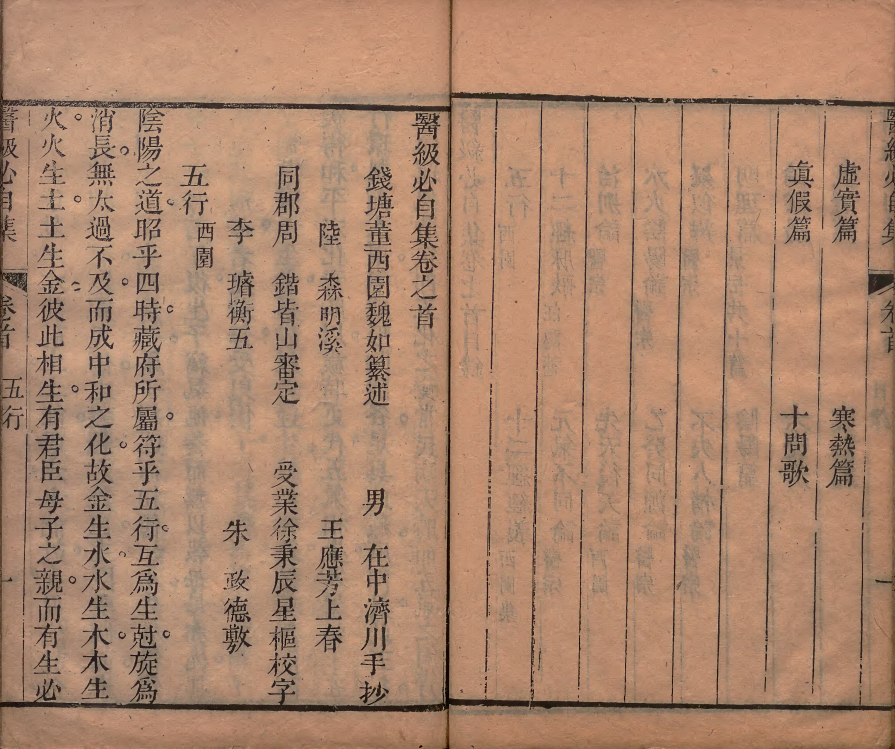 醫級必自集
卷首
一
虛實篇 寒熱篇
真假篇 十問歌
醫級必自集卷之首
錢塘董西園魏如纂述 男 在中濟川手抄
陸 森明溪 王應芳上春
同郡周 鍇皆山審定 受業徐秉辰星樞校字
李 瑭衡五 朱 政德敷
五行 西園
陰陽之道昭乎四時藏府所屬符乎五行互爲生尅旋爲
消長無太過不及而成中和之化故金生水水生木木生
火火生土土生金彼此相生有君臣母子之親而有生必
醫級必自集
卷首
五行
一